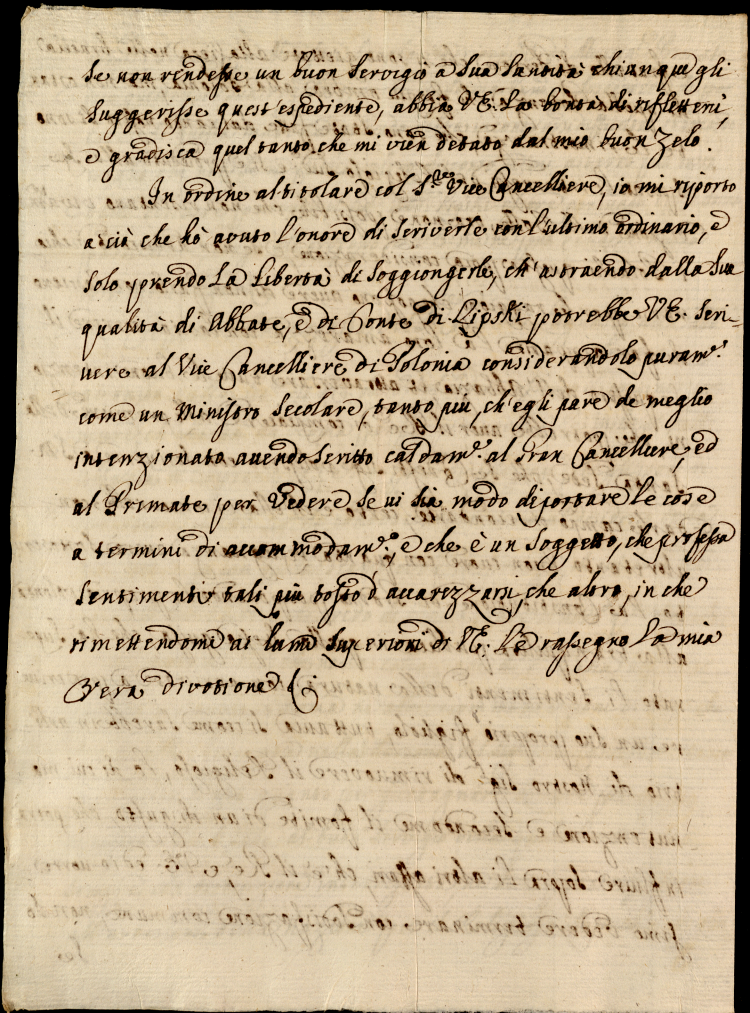 se non rendesse un buon servigio à Sua Santità chiunque gli
suggerisse quest'espediente, abbia VE. la bontà di riflettervi,
e gradisca quel tanto che mi vien detato dal mio buon zelo.
In ordine al titolare col S.re Vice Cancelliere, io mi riporto
a ciò che hò avuto l'onore di scriverle con l'ultimo ordinario, e
solo prendo la libertà di soggiongerle, ch'astraendo dalla sua
qualità di Abbate, e di Conte di Lipski potrebbe VE. scri-
vere al Vice Cancelliere di Polonia considerandolo puram.te
come un Ministro secolare, tanto più, ch'egli pare de meglio
intenzionato avendo scritto caldam.te al Gran Cancelliere, ed
al Primate per vedere se vi sia modo di portare le cose
a termini di accommodam.to, e che è un soggetto, che professa
sentimenti tali più tosto d'accarezzarsi, che altro, in che
rimettendomi ai lumi superiori di VE. Le rassegno la mia
vera divotione